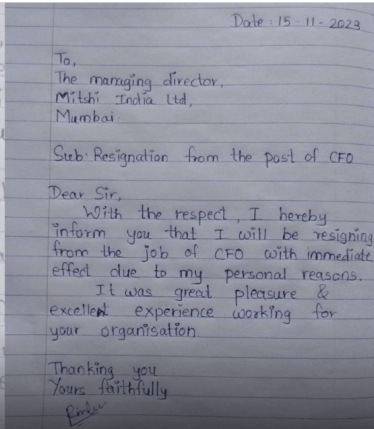 Date: 15-11-2023
To,
The managing director,
Mitshi India Ltd,
Mumbai
Sub: Resignation from the post of CFO
Dear Sir,
With the respect, I hereby
inform you that I will be resigning
from the job of CFO with immediate
effect due to my personal reasons.
It was great pleasure &
excellent experience working for
your organisation.
Thanking you
Yours faithfully